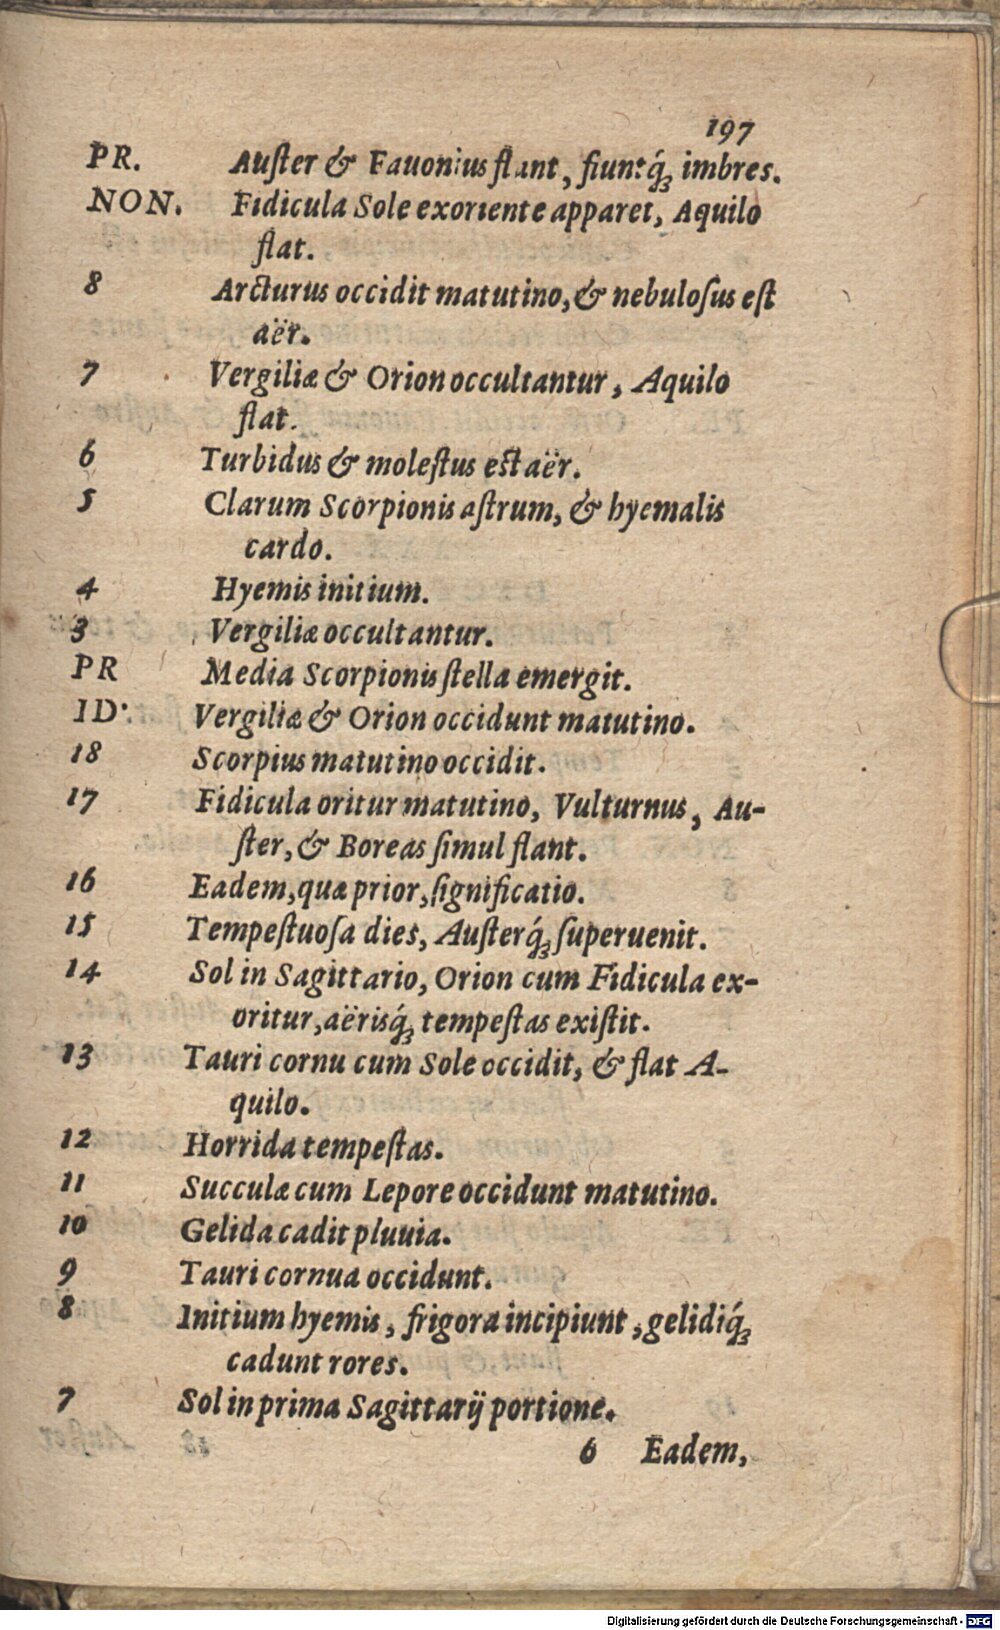 197
PR. Auſter & Fauonius flant, fiuntq́ꝫ imbres.
NON. Fidicula Sole exoriente apparet, Aquilo
flat.
8 Arcturus occidit matutino, & nebuloſus eſt
aër.
7 Vergiliæ & Orion occultantur, Aquilo
flat.
6 Turbidus & moleſtus eſt aër.
5 Clarum Scorpionis aſtrum, & hyemalis
cardo.
4 Hyemis initium.
3 Vergiliæ occultantur.
PR Media Scorpionis ſtella emergit.
ID. Vergiliæ & Orion occidunt matutino.
18 Scorpius matutino occidit.
17 Fidicula oritur matutino, Vulturnus, Au-
ſter, & Boreas ſimul flant.
16 Eadem, quæ prior, ſignificatio.
15 Tempeſtuoſa dies, Auſterq́ꝫ ſuperuenit.
14 Sol in Sagittario, Orion cum Fidicula ex-
oritur, aërisq́ꝫ tempeſtas exiſtit.
13 Tauri cornu cum Sole occidit, & flat A-
quilo.
12 Horrida tempeſtas.
11 Succulæ cum Lepore occidunt matutino.
10 Gelida cadit pluuia.
9 Tauri cornua occidunt.
8 Initium hyemis, frigora incipiunt, gelidiq́ꝫ
cadunt rores.
7 Sol in prima Sagittarij portione.
6 Eadem,
Digitalisierung gefördert durch die Deutsche Forschungsgemeinschaft - DFG